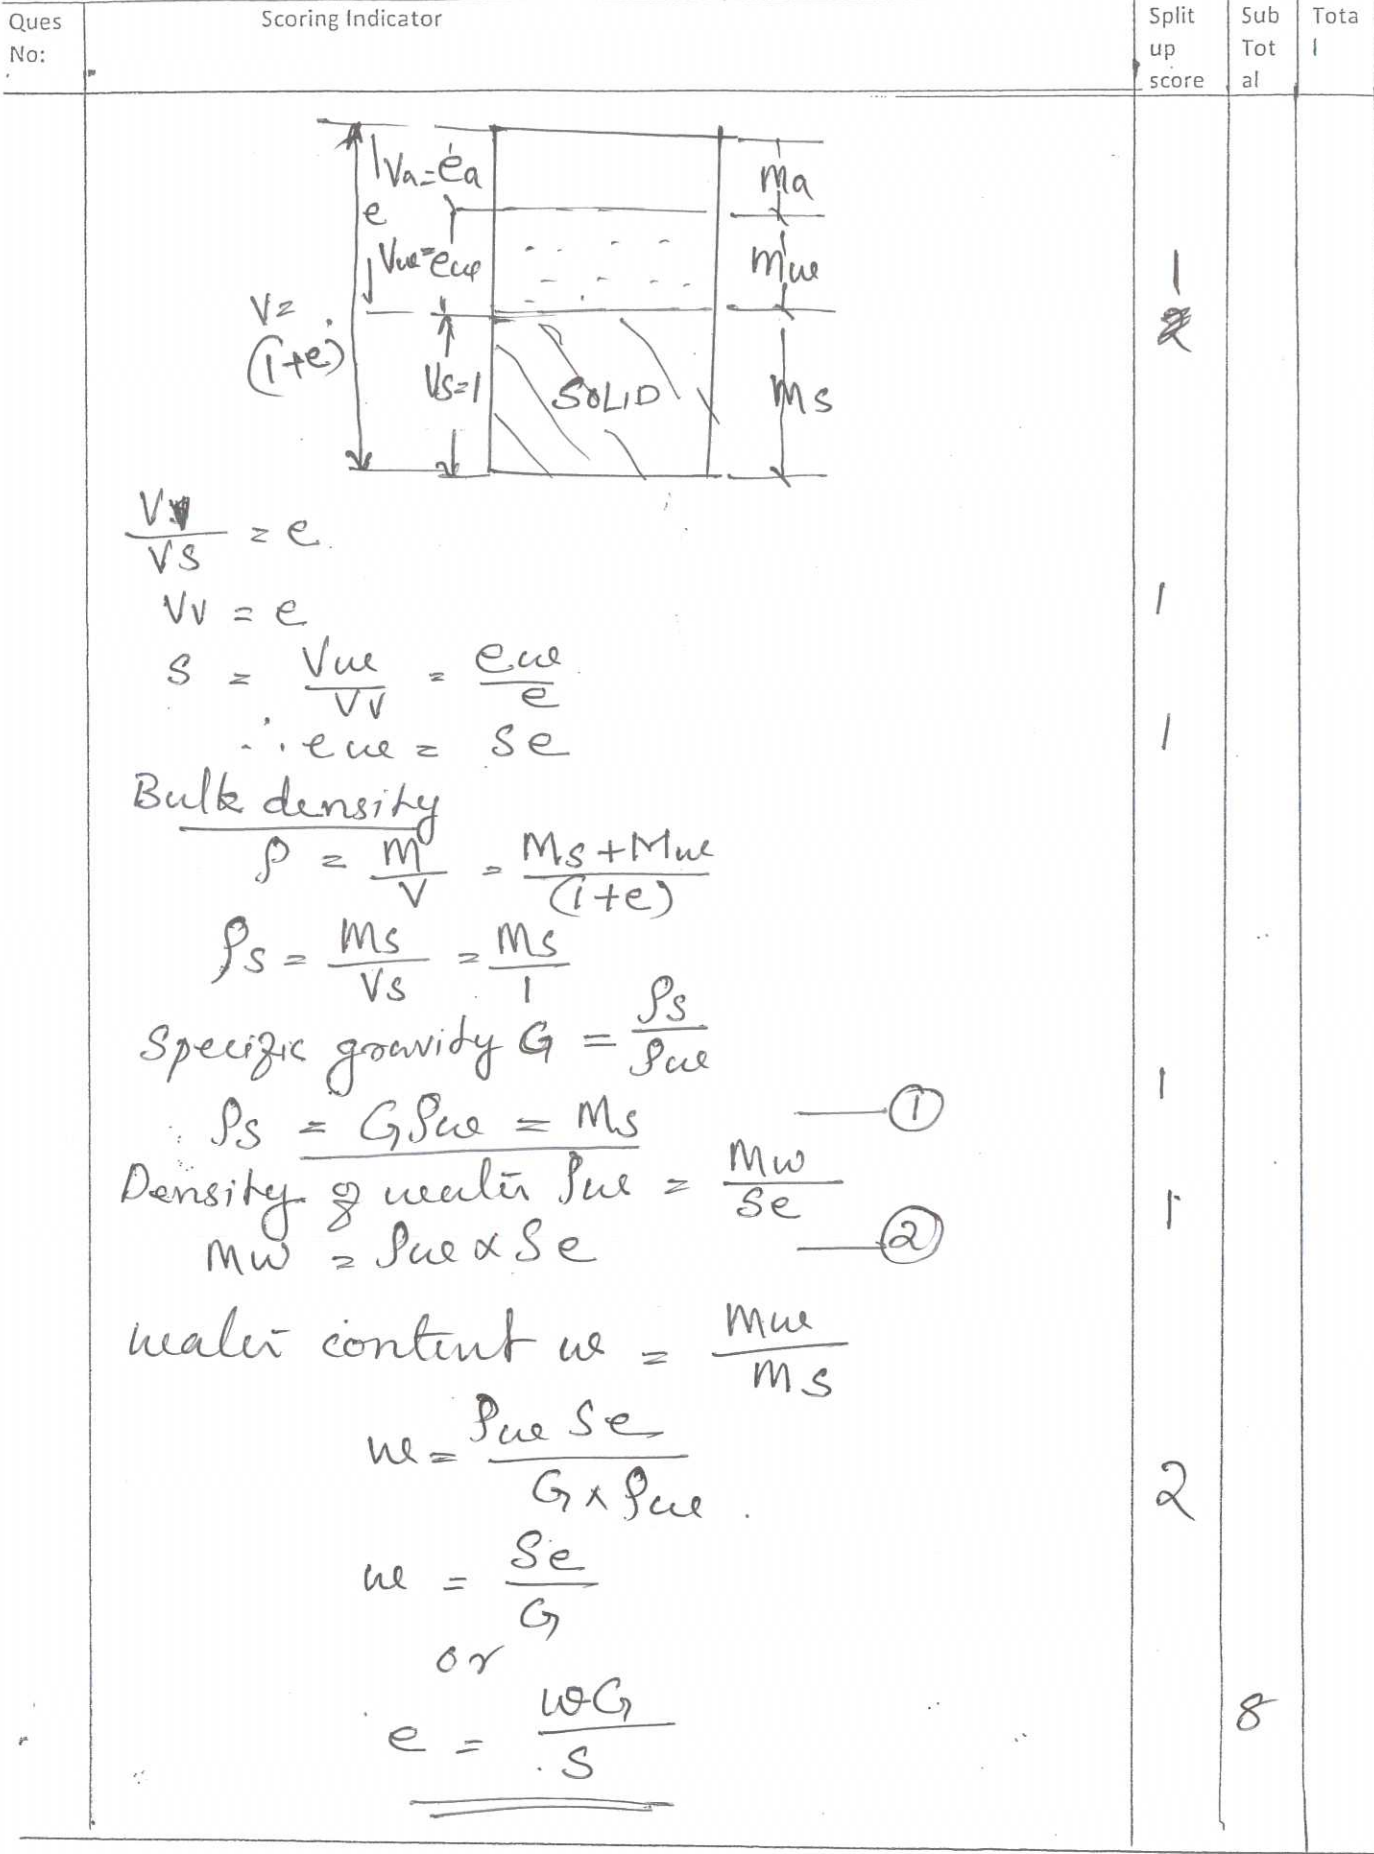 Ques No:
Scoring Indicator
Split up score
Sub Tot al
Tota l
Va=ea
e
Vw=ew
V=
(1+e)
Vs=1
SOLID
Ma
Mw
Ms
1
Vv/Vs = e
Vv = e
1
S = Vw/Vv = ew/e
∴ ew = Se
1
Bulk density
ρ = M/V = Ms+Mw/(1+e)
ρs = Ms/Vs = Ms/1
Specific gravity G = ρs/ρw
1
∴ ρs = Gρw = Ms —— ①
Density of water ρw = Mw/Se
1
Mw = ρw x Se —— ②
water content w = Mw/Ms
w = ρw Se/G x ρw
2
w = Se/G
or
e = wG/S
8